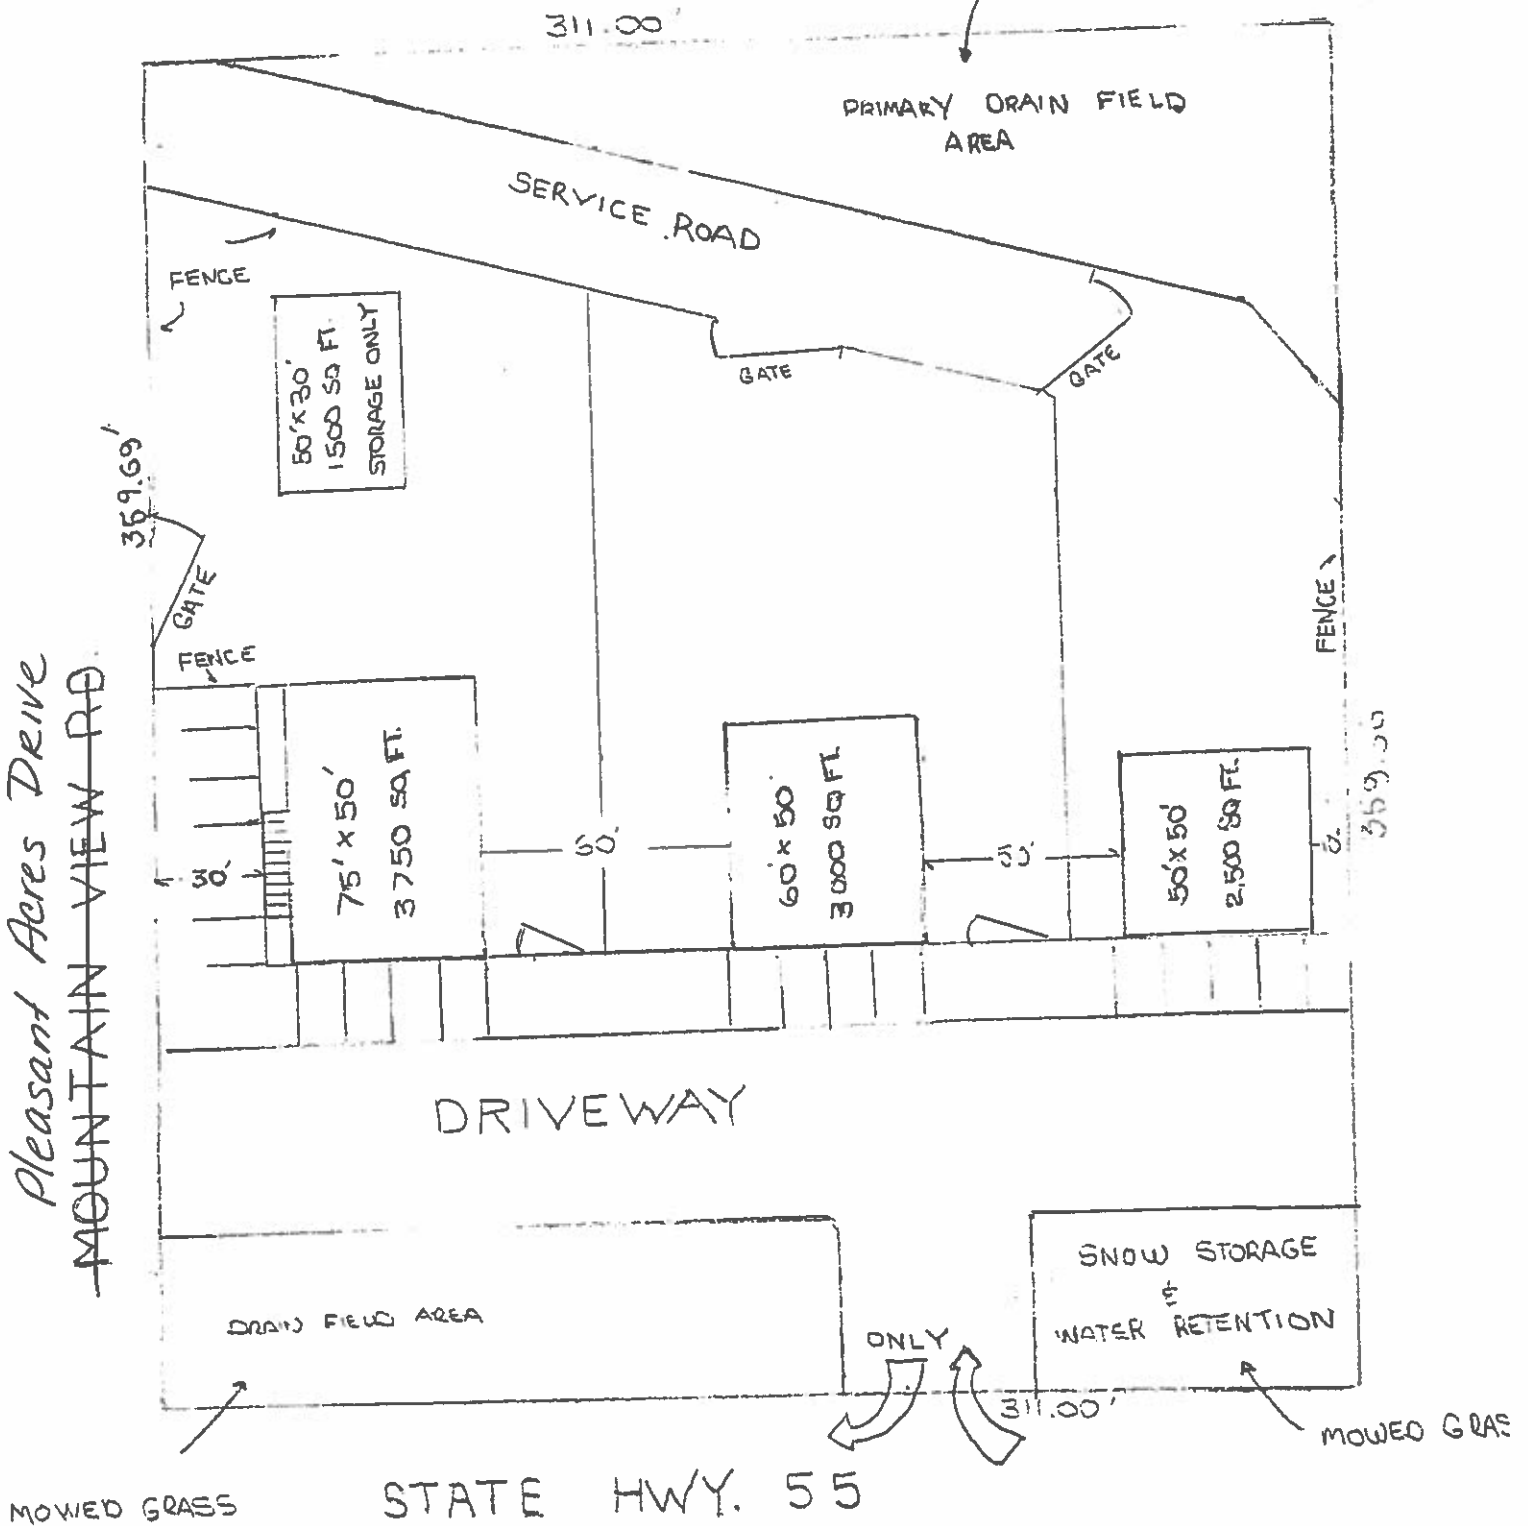 311.00'
PRIMARY DRAIN FIELD
AREA
SERVICE ROAD
FENCE
50'X30'
1500 SQ FT.
STORAGE ONLY
GATE
GATE
359.69'
GATE
FENCE
FENCE
Pleasant Acres Drive
MOUNTAIN VIEW RD
75' X 50'
3750 SQ FT.
60'X 50'
3000 SQ FT.
50'X 50'
2,500 SQ FT.
30'
DRIVEWAY
SNOW STORAGE
&
WATER RETENTION
DRAIN FIELD AREA
ONLY
311.00'
MOWED GRAS
MOWED GRASS
STATE HWY. 55